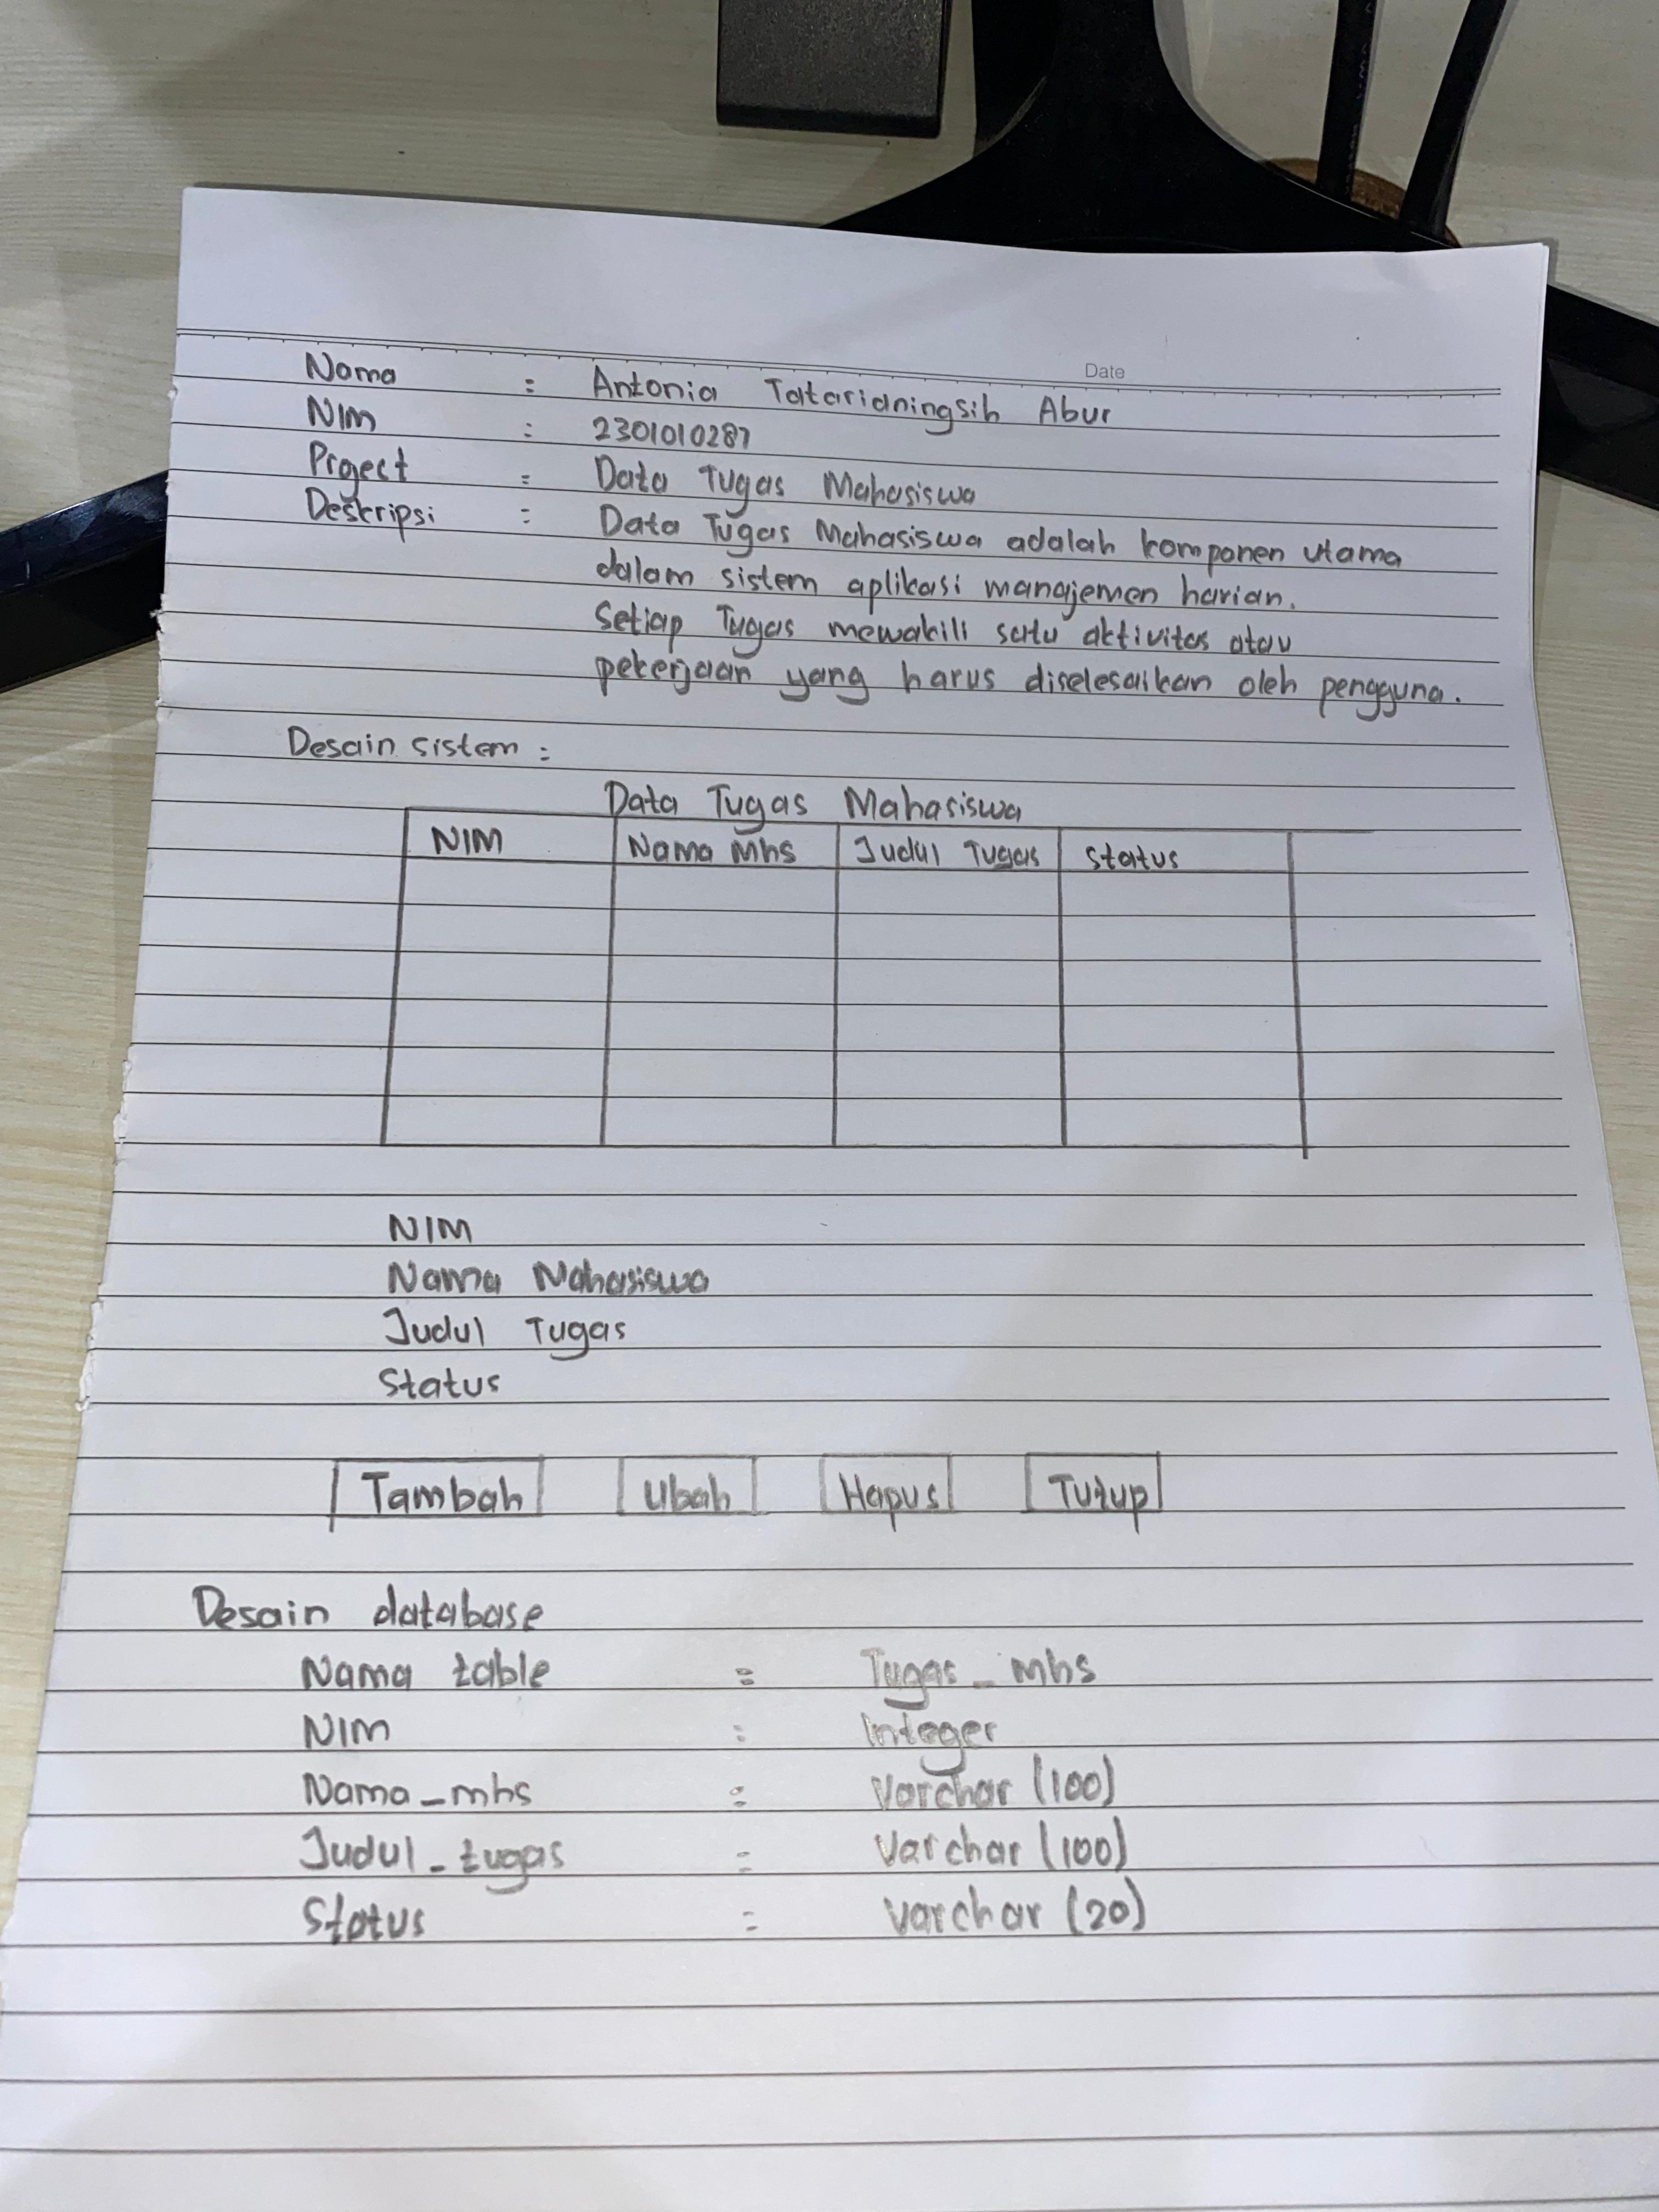 Date
Nama : Antonia Tatarianingsih Abur
NIM : 2301010287
Project : Data Tugas Mahasiswa
Deskripsi : Data Tugas Mahasiswa adalah komponen utama
dalam sistem aplikasi manajemen harian.
Setiap Tugas mewakili satu aktivitas atau
pekerjaan yang harus diselesaikan oleh pengguna.
Desain sistem :
Data Tugas Mahasiswa
NIM Nama Mhs Judul Tugas Status
NIM
Nama Mahasiswa
Judul Tugas
Status
Tambah Ubah Hapus Tutup
Desain database
Nama table : Tugas_mhs
NIM : Integer
Nama_mhs : Varchar (100)
Judul_tugas : Varchar (100)
Status : Varchar (20)